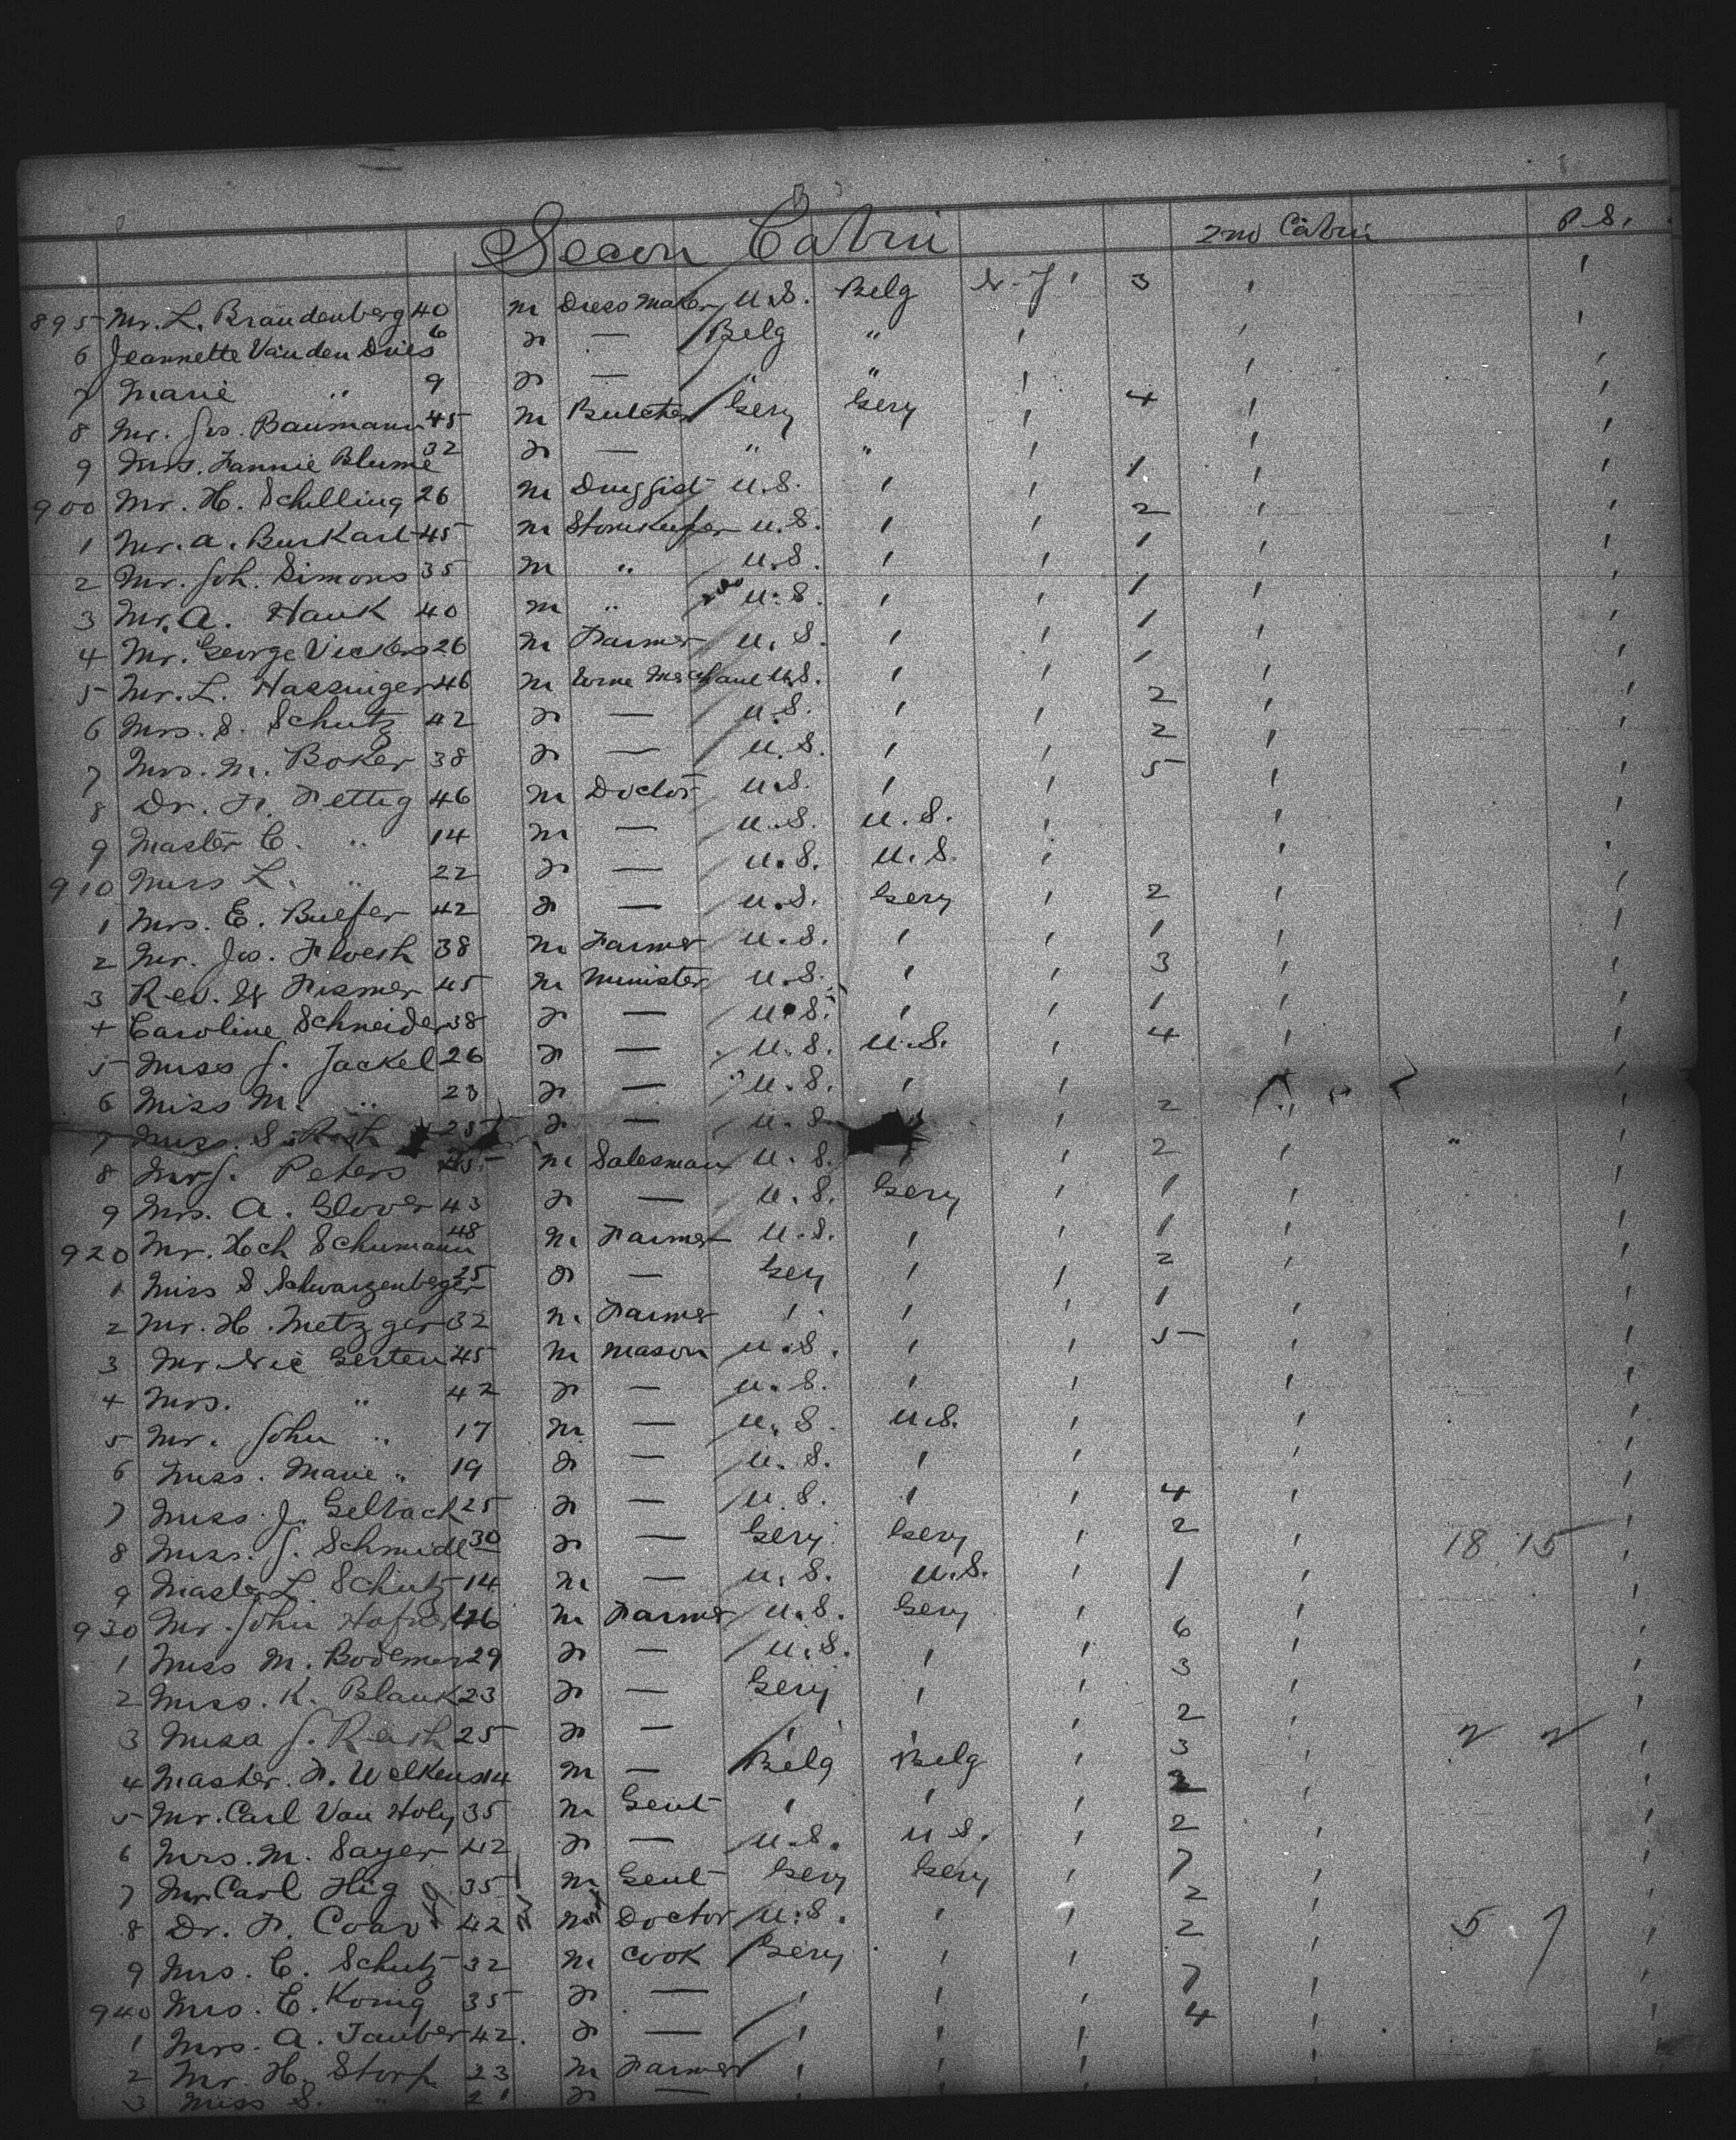 Secon Cabin
2nd Cabin P.S.
895 Mr. L. Brandenberg 40 m Dress Maker U.S. Belg N.Y. 3
6 Jeannette Van den Dries 6 f — Belg "
7 Marie " 9 f — " "
8 Mr. Jos. Baumann 45 m Butcher Gery Gery 4
9 Mrs. Fannie Blume 32 f — " "
900 Mr. H. Schilling 26 m Druggist U.S. 1
1 Mr. A. Burkart 45 m Storekeeper U.S. 2
2 Mr. Joh. Simons 35 m " U.S. 1
3 Mr. A. Hauk 40 m " U.S. 1
4 Mr. George Vickers 26 m Farmer U.S. 1
5 Mr. L. Hassinger 46 m U.S. 1
6 Mrs. S. Schutz 42 f — U.S. 2
7 Mrs. M. Boker 38 f — U.S. 2
8 Dr. F. Fettig 46 m Doctor U.S. 5
9 Master C. " 14 m — U.S. U.S.
910 Miss L. " 22 f — U.S. U.S.
1 Mrs. E. 42 f — U.S. Gery 2
2 Mr. Jos. 38 m Farmer U.S. 1
3 Rev. 45 m Minister U.S. 3
4 Caroline Schneider 38 f — U.S. 1
5 Miss J. Jackel 26 f — U.S. U.S. 4
6 Miss M. " 23 f — U.S.
7 Miss. S. 25 f — U.S. 2
8 Mr J. Peters m Salesman U.S. 2
9 Mrs. A. Glover 43 f — U.S. Gery 1
920 Mr. Hch Schumann 48 m Farmer U.S. 1
1 Miss S Schwarzenberger 25 f — Gery 2
2 Mr. H. Metzger 32 m Farmer 1
3 Mr. Nic Gerten 45 m Mason U.S. 5
4 Mrs. " 42 f — U.S.
5 Mr. John " 17 m — U.S. U.S.
6 Miss. Marie " 19 f — U.S.
7 Miss J. Gelbach 25 f — U.S. 4
8 Miss. J. Schmidt 30 f — Gery Gery 2 18 15
9 Master L. Schutz 14 m — U.S. U.S. 1
930 Mr. John m Farmer U.S. Gery
1 Miss M. Bodemer 29 f — U.S. 6
2 Miss. K. Blank 23 f — Gery 3
3 Miss J. 25 f — 2
4 Master. F. Welkens 14 m — Belg Belg 3
5 Mr. Carl Van Holy 35 m Gent 2
6 Mrs. M. Sayer 42 f — U.S. U.S. 2
7 Mr. Carl 35 m Gent Gery Gery 7
8 Dr. F. 42 m Doctor U.S. 2 5 7
9 Mrs. C. Schutz 32 m Cook Gery 2
940 Mrs. E. Konig 35 f — 7
1 Mrs. A. Tauber 42. f — 4
2 Mr. H. Storf 23 m Farmer
3 Miss S. " f —